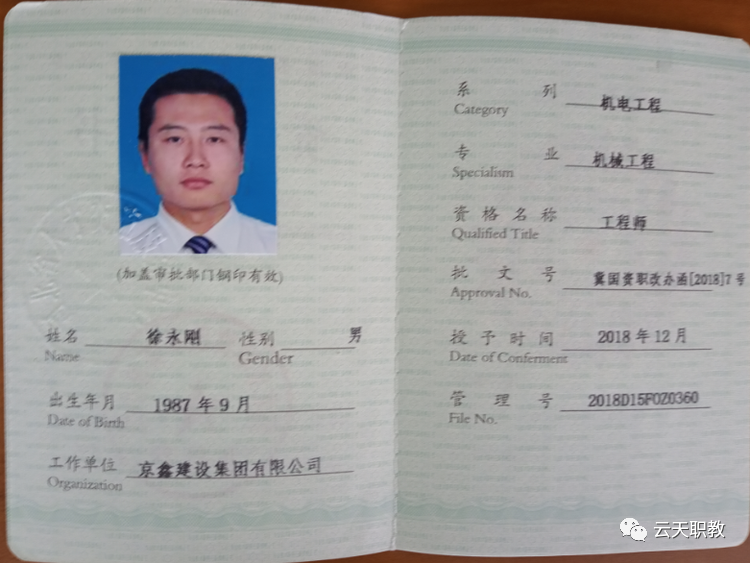 (加盖审批部门钢印有效)
姓名 徐永刚 性别 男
Name Gender
出生年月 1987年9月
Date of Birth
工作单位 京鑫建设集团有限公司
Organization
系列 机电工程
Category
专业 机械工程
Specialism
资格名称 工程师
Qualified Title
批文号 冀国资职改办函[2018]7号
Approval No.
授予时间 2018年12月
Date of Conferment
管理号 2018D15F0Z0360
File No.
云天职教